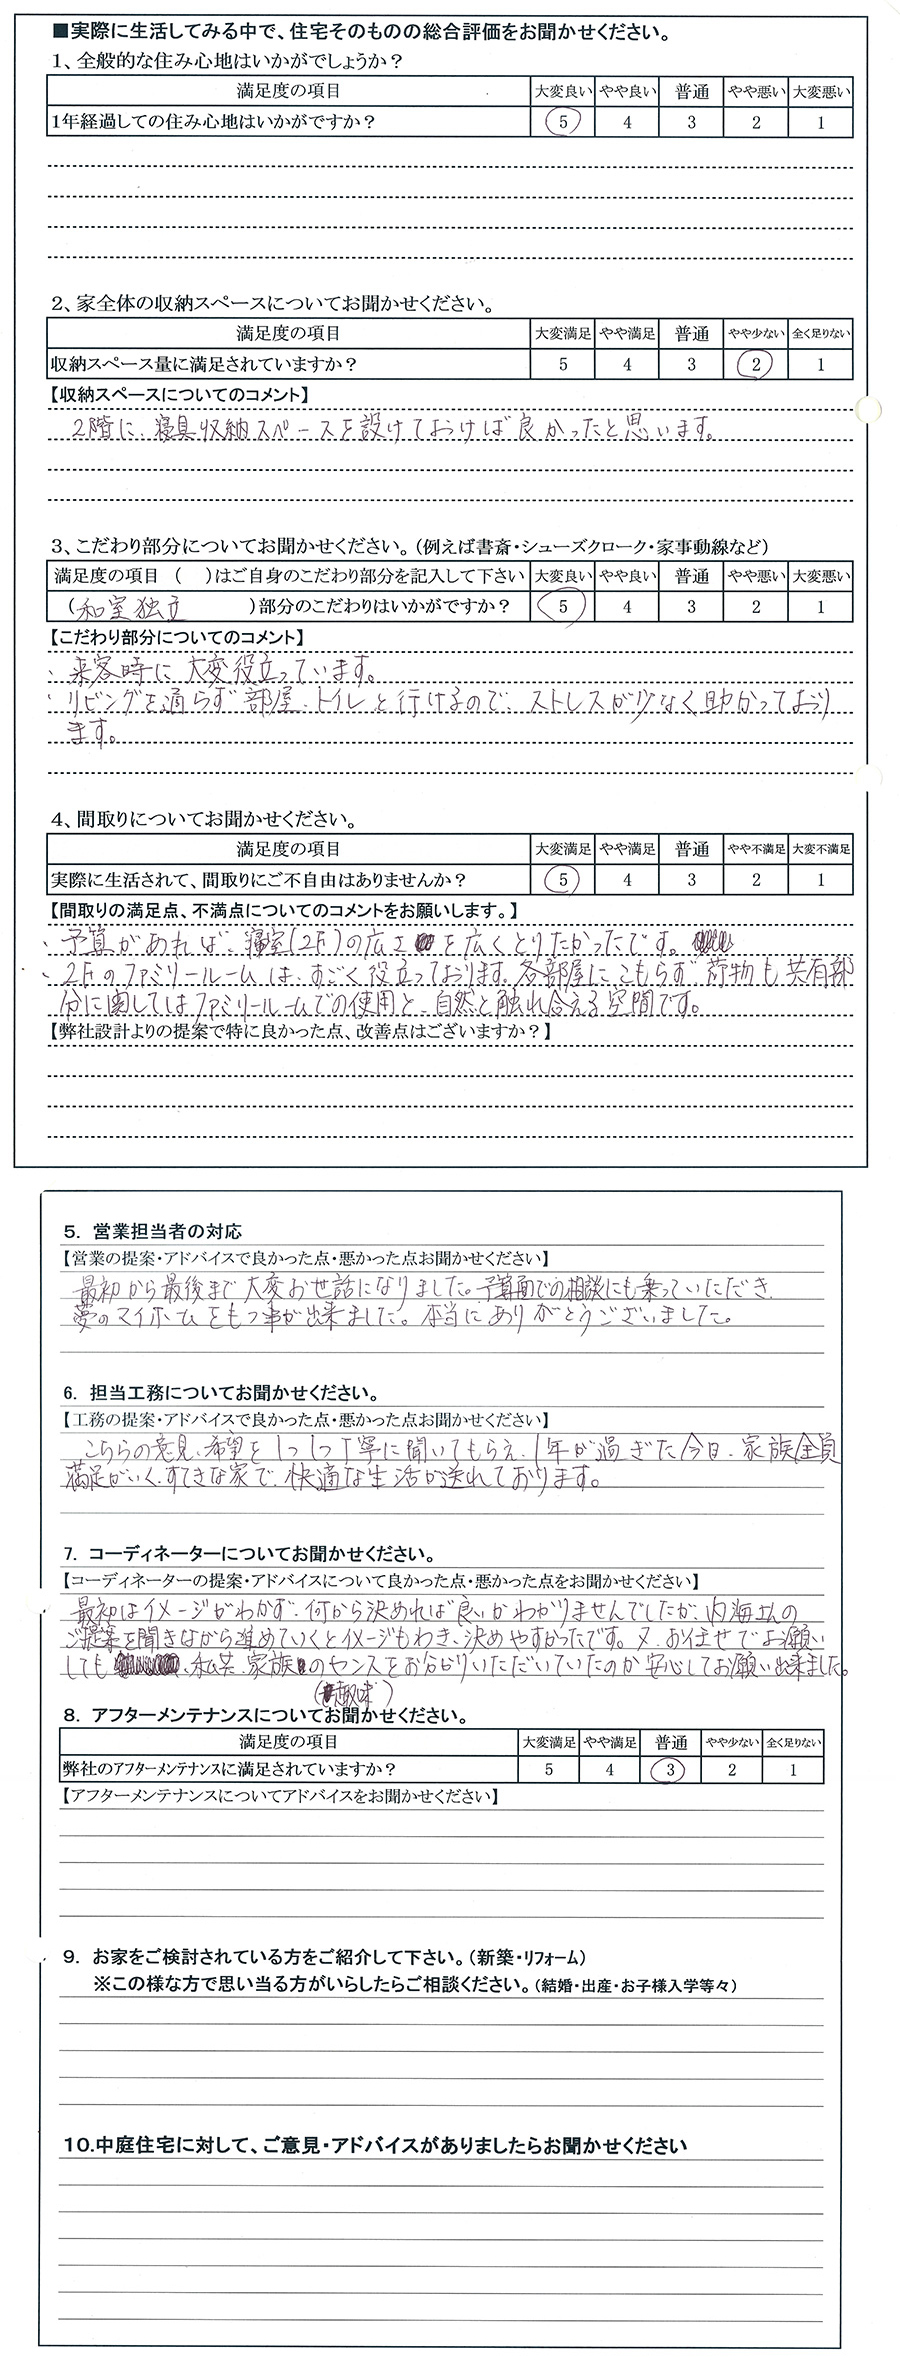 ■実際に生活してみる中で、住宅そのものの総合評価をお聞かせください。
1、全般的な住み心地はいかがでしょうか？
満足度の項目 大変良い やや良い 普通 やや悪い 大変悪い
1年経過しての住み心地はいかがですか？ 5 4 3 2 1
2、家全体の収納スペースについてお聞かせください。
満足度の項目 大変満足 やや満足 普通 やや少ない 全く足りない
収納スペース量に満足されていますか？ 5 4 3 2 1
【収納スペースについてのコメント】
2階に、寝具収納スペースを設けておけば良かったと思います。
3、こだわり部分についてお聞かせください。（例えば書斎・シューズクローク・家事動線など）
満足度の項目 （ ）はご自身のこだわり部分を記入して下さい 大変良い やや良い 普通 やや悪い 大変悪い
（和室独立 ）部分のこだわりはいかがですか？ 5 4 3 2 1
【こだわり部分についてのコメント】
、来客時に大変役立っています。
、リビングを通らず部屋、トイレと行けるので、ストレスが少なく助かっており
ます。
4、間取りについてお聞かせください。
満足度の項目 大変満足 やや満足 普通 やや不満足 大変不満足
実際に生活されて、間取りにご不自由はありませんか？ 5 4 3 2 1
【間取りの満足点、不満点についてのコメントをお願いします。】
、予算があれば、寝室(2F)の広さを広くとりたかったです。
、2Fのファミリールームは、すごく役立っております。各部屋にこもらず荷物も共有部
分に関してはファミリールームでの使用と、自然と触れ合える空間です。
【弊社設計よりの提案で特に良かった点、改善点はございますか？】
5. 営業担当者の対応
【営業の提案・アドバイスで良かった点・悪かった点お聞かせください】
最初から最後まで大変お世話になりました。予算面での相談にも乗っていただき、
夢のマイホームをもつ事が出来ました。本当にありがとうございました。
6. 担当工務についてお聞かせください。
【工務の提案・アドバイスで良かった点・悪かった点お聞かせください】
こちらの意見、希望を1つ1つ丁寧に聞いてもらえ、1年が過ぎた今日、家族全員
満足がいく、すてきな家で、快適な生活が送れております。
7. コーディネーターについてお聞かせください。
【コーディネーターの提案・アドバイスについて良かった点・悪かった点をお聞かせください】
最初はイメージがわかず、何から決めれば良いかわかりませんでしたが、内海さんの
ご提案を聞きながら進めていくとイメージもわき、決めやすかったです。又、お任せでお願い
しても、私共、家族のセンスをお分かりいただいていたのか安心してお願い出来ました。
（趣味）
8. アフターメンテナンスについてお聞かせください。
満足度の項目 大変満足 やや満足 普通 やや少ない 全く足りない
弊社のアフターメンテナンスに満足されていますか？ 5 4 3 2 1
【アフターメンテナンスについてアドバイスをお聞かせください】
9. お家をご検討されている方をご紹介して下さい。（新築・リフォーム）
※この様な方で思い当る方がいらしたらご相談ください。（結婚・出産・お子様入学等々）
10.中庭住宅に対して、ご意見・アドバイスがありましたらお聞かせください